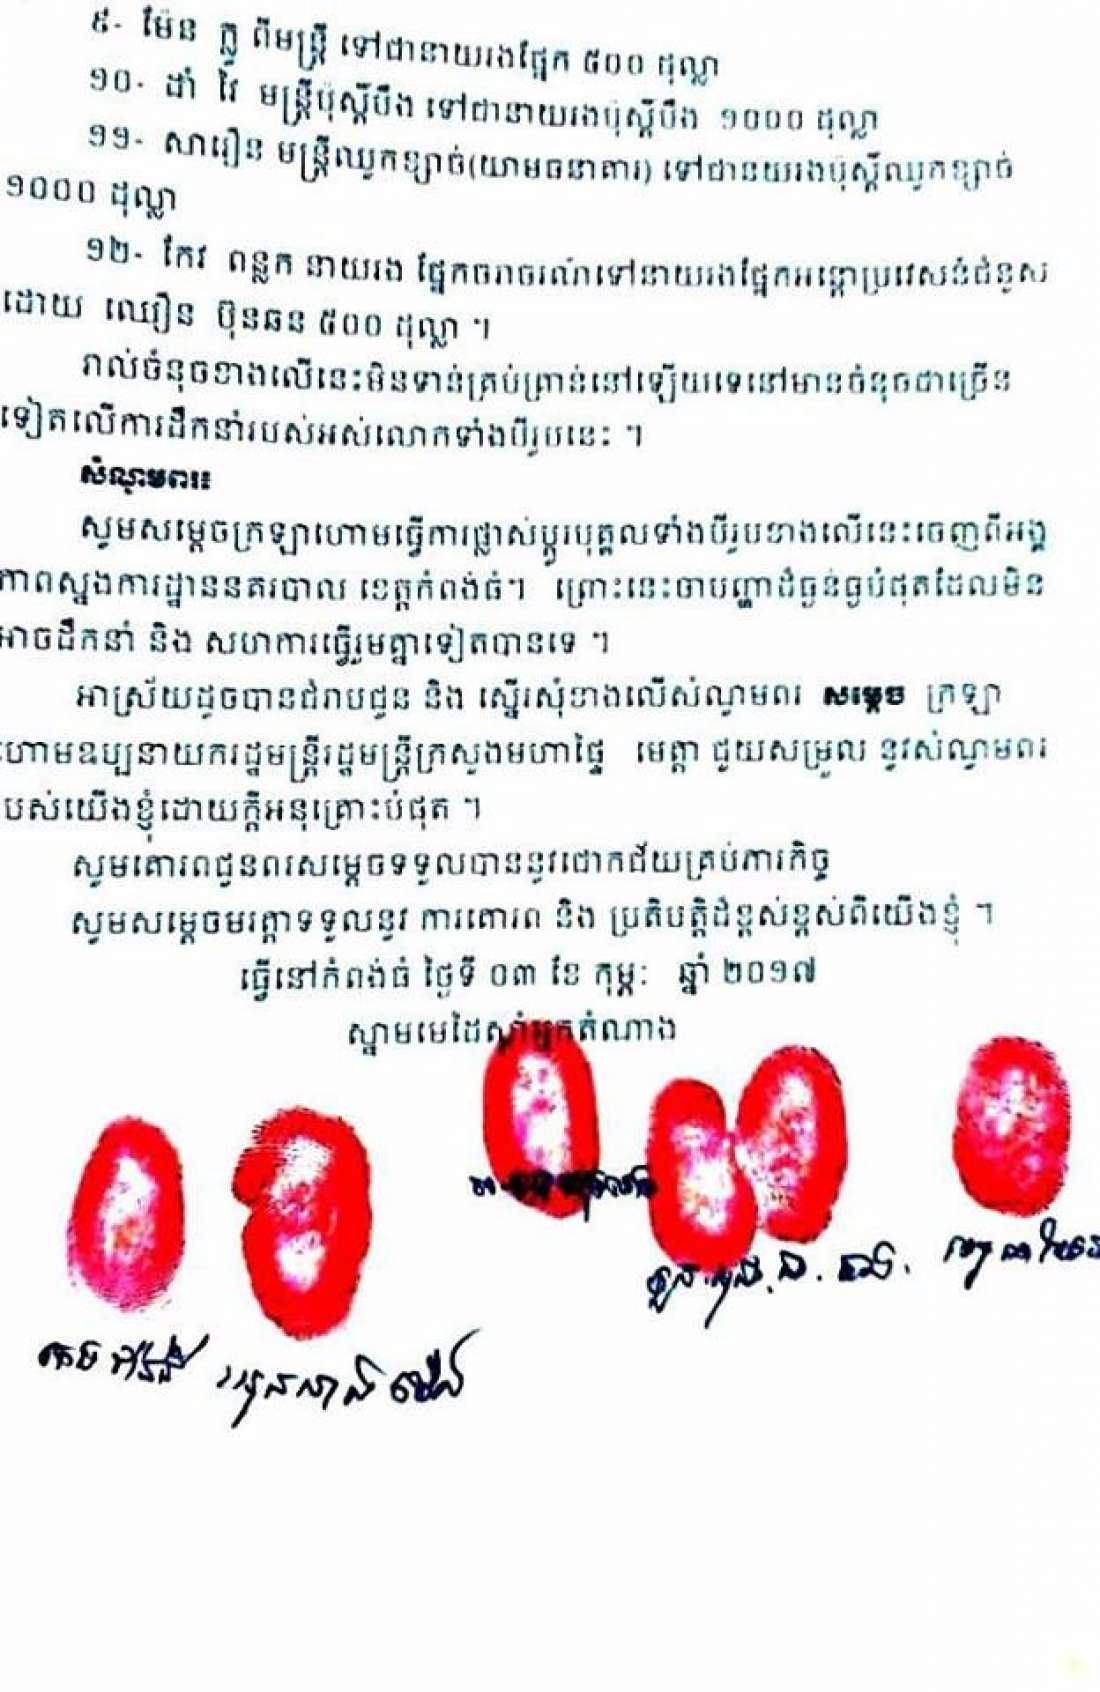 ៩- ម៉ែន ក្លូ ពីមន្ត្រី ទៅជានាយរងផ្នែក ៥០០ ដុល្លា
១០- ដាំ វៃ មន្ត្រីប៉ុស្តិ៍បឹង ទៅជានាយរងប៉ុស្តិ៍បឹង ១០០០ ដុល្លា
១១- សារឿន មន្ត្រីឈូកខ្សាច់(យាមធនាគារ) ទៅជានយរងប៉ុស្តិ៍ឈូកខ្សាច់
១០០០ ដុល្លា
១២- កែវ ពន្លក នាយរង ផ្នែកចរាចរណ៍ទៅនាយរងផ្នែកអន្តោប្រវេសន៍ជំនួស
ដោយ ឈឿន ប៊ុនឆន ៥០០ ដុល្លា ។
រាល់ចំនុចខាងលើនេះមិនទាន់គ្រប់គ្រាន់នៅឡើយទេនៅមានចំនុចជាច្រើន
ទៀតលើការដឹកនាំរបស់អស់លោកទាំងបីរូបនេះ ។
សំណូមពរ៖
សូមសម្តេចក្រឡាហោមធ្វើការផ្លាស់ប្តូរបុគ្គលទាំងបីរូបខាងលើនេះចេញពីអង្គ
ភាពស្នងការដ្ឋាននគរបាល ខេត្តកំពង់ធំ។ ព្រោះនេះចាបញ្ហាដ៏ធ្ងន់ធ្ងបំផុតដែលមិន
អាចដឹកនាំ និង សហការធ្វើរួមគ្នាទៀតបានទេ ។
អាស្រ័យដូចបានជំរាបជូន និង ស្នើរសុំខាងលើសំណូមពរ សម្តេច ក្រឡា
ហោមឧប្បនាយករដ្ឋមន្ត្រីរដ្ឋមន្ត្រីក្រសួងមហាផ្ទៃ មេត្តា ជួយសម្រួល នូវសំណូមពរ
របស់យើងខ្ញុំដោយក្តីអនុគ្រោះបំផុត ។
សូមគោរពជូនពរសម្តេចទទួលបាននូវជោកជ័យគ្រប់ភារកិច្ច
សូមសម្តេចមរត្តាទទួលនូវ ការគោរព និង ប្រតិបត្តិដ៏ខ្ពស់ខ្ពស់ពីយើងខ្ញុំ ។
ធ្វើនៅកំពង់ធំ ថ្ងៃទី ០៣ ខែ កុម្ភៈ ឆ្នាំ ២០១៧
ស្នាមមេដៃស្តាំអ្នកតំណាង